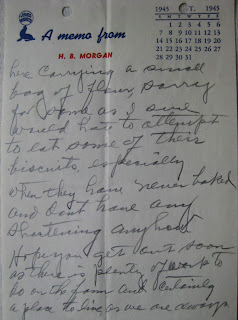 1945 OCT. 1945
S M T W T F S
1 2 3 4 5 6
7 8 9 10 11 12 13
14 15 16 17 18 19 20
21 22 23 24 25 26 27
28 29 30 31
A memo from
H. B. MORGAN
be carrying a small
bag of flour. Sorry
for some as I sure
would hate to attempt
to eat some of their
biscuits, especially
when they have never baked
and dont have any
shortening anyhow
Hope you get out soon
as there is plenty of work to
do on the farm and certainly
a place to live as we are always